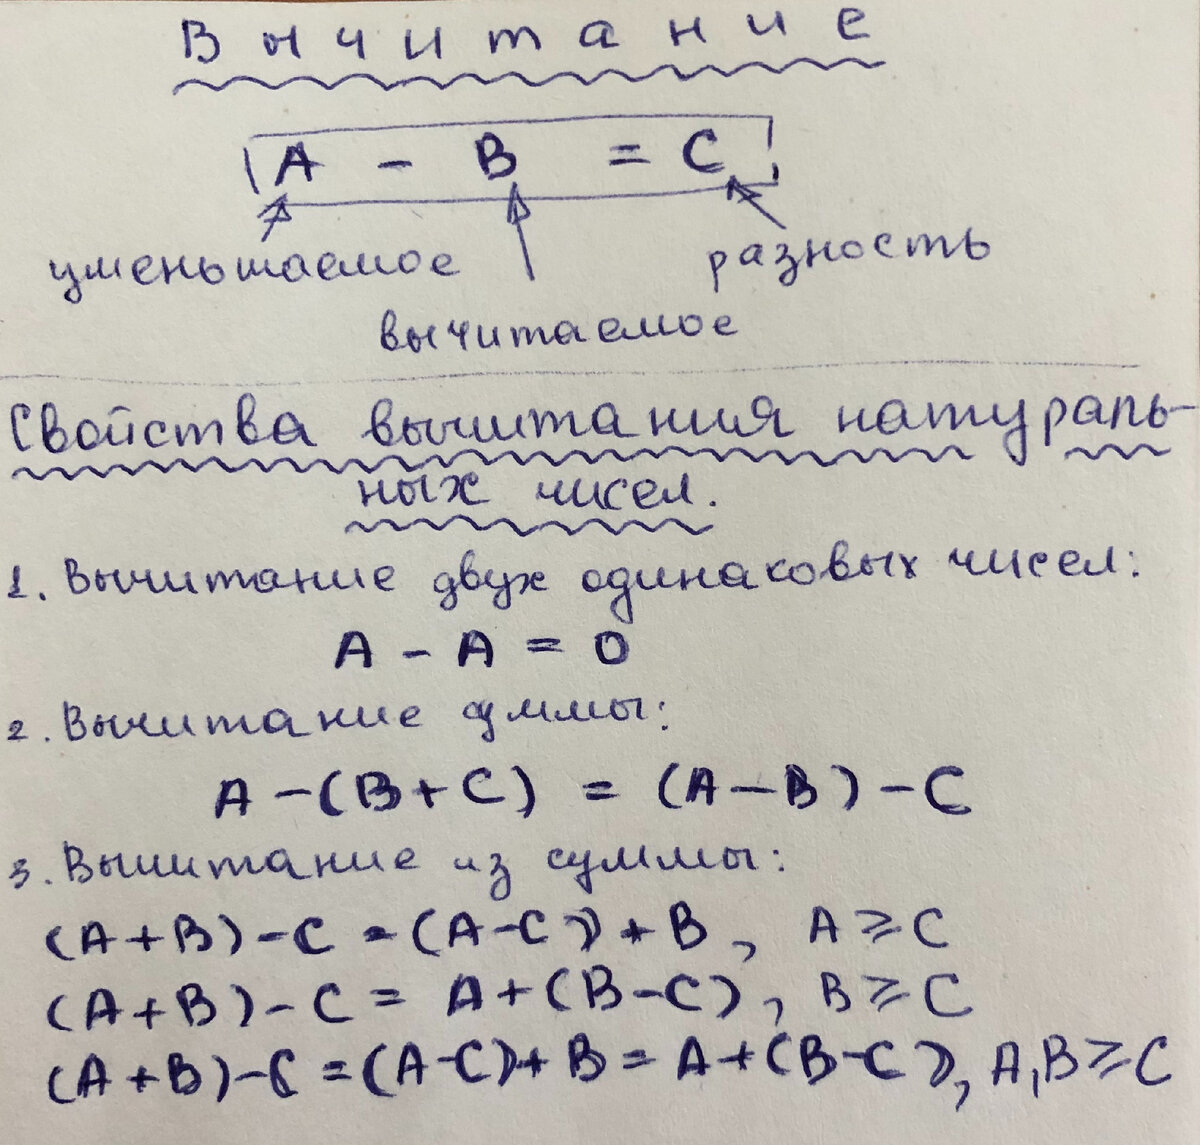 Вычитание
A - B = C
уменьшаемое разность
вычитаемое
Свойства вычитания натураль-
ных чисел.
1. Вычитание двух одинаковых чисел:
A - A = 0
2. Вычитание суммы:
A - (B + C) = (A - B) - C
3. Вычитание из суммы:
(A + B) - C = (A - C) + B, A ⩾ C
(A + B) - C = A + (B - C), B ⩾ C
(A + B) - C = (A - C) + B = A + (B - C), A, B ⩾ C